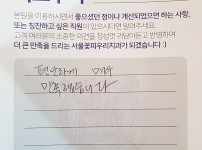 본원을 이용하시면서 좋으셨던 점이나 개선되었으면 하는 사항,
또는 칭찬하고 싶은 직원이 있으시다면 말씀해 주세요.
고객 여러분의 소중한 의견을 정성껏 귀담아듣고 반영하여
더 큰 만족을 드리는 서울꽃피우리치과가 되겠습니다 :)
편안하게 매우
만족해합니다